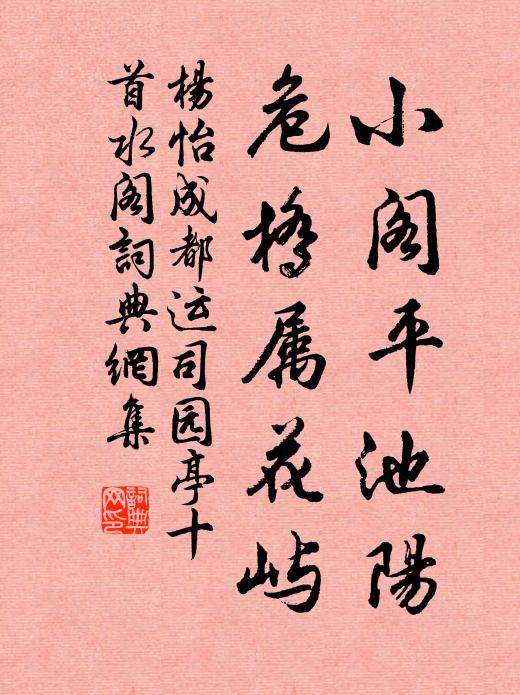 小阁平池陽
危橋属花屿
楊怡成都运司园亭十
首水阁詞典網集
詞典网印